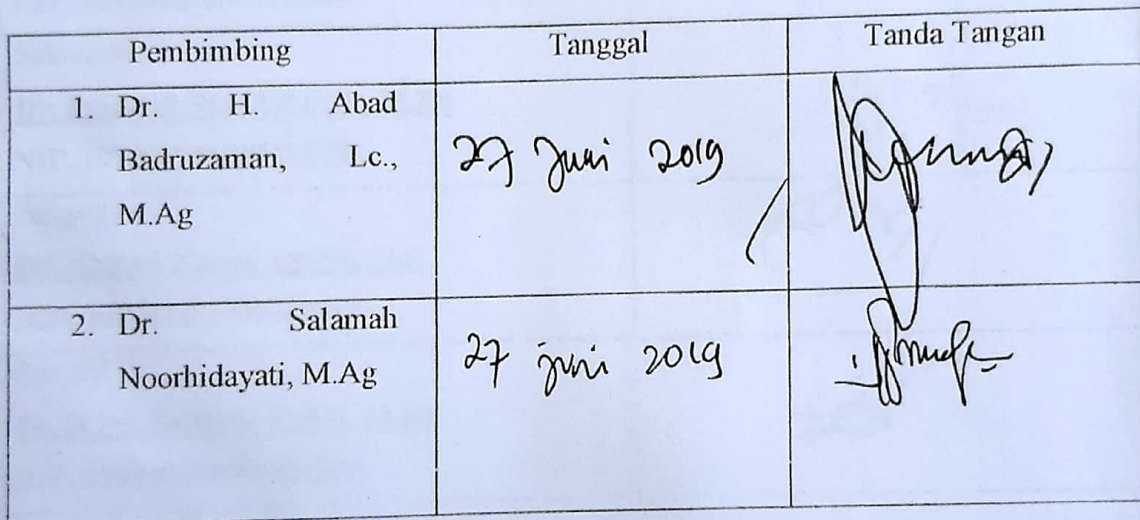 Pembimbing Tanggal Tanda Tangan
1. Dr. H. Abad
Badruzaman, Lc.,
M.Ag
27 Juni 2019
2. Dr. Salamah
Noorhidayati, M.Ag
27 juni 2019